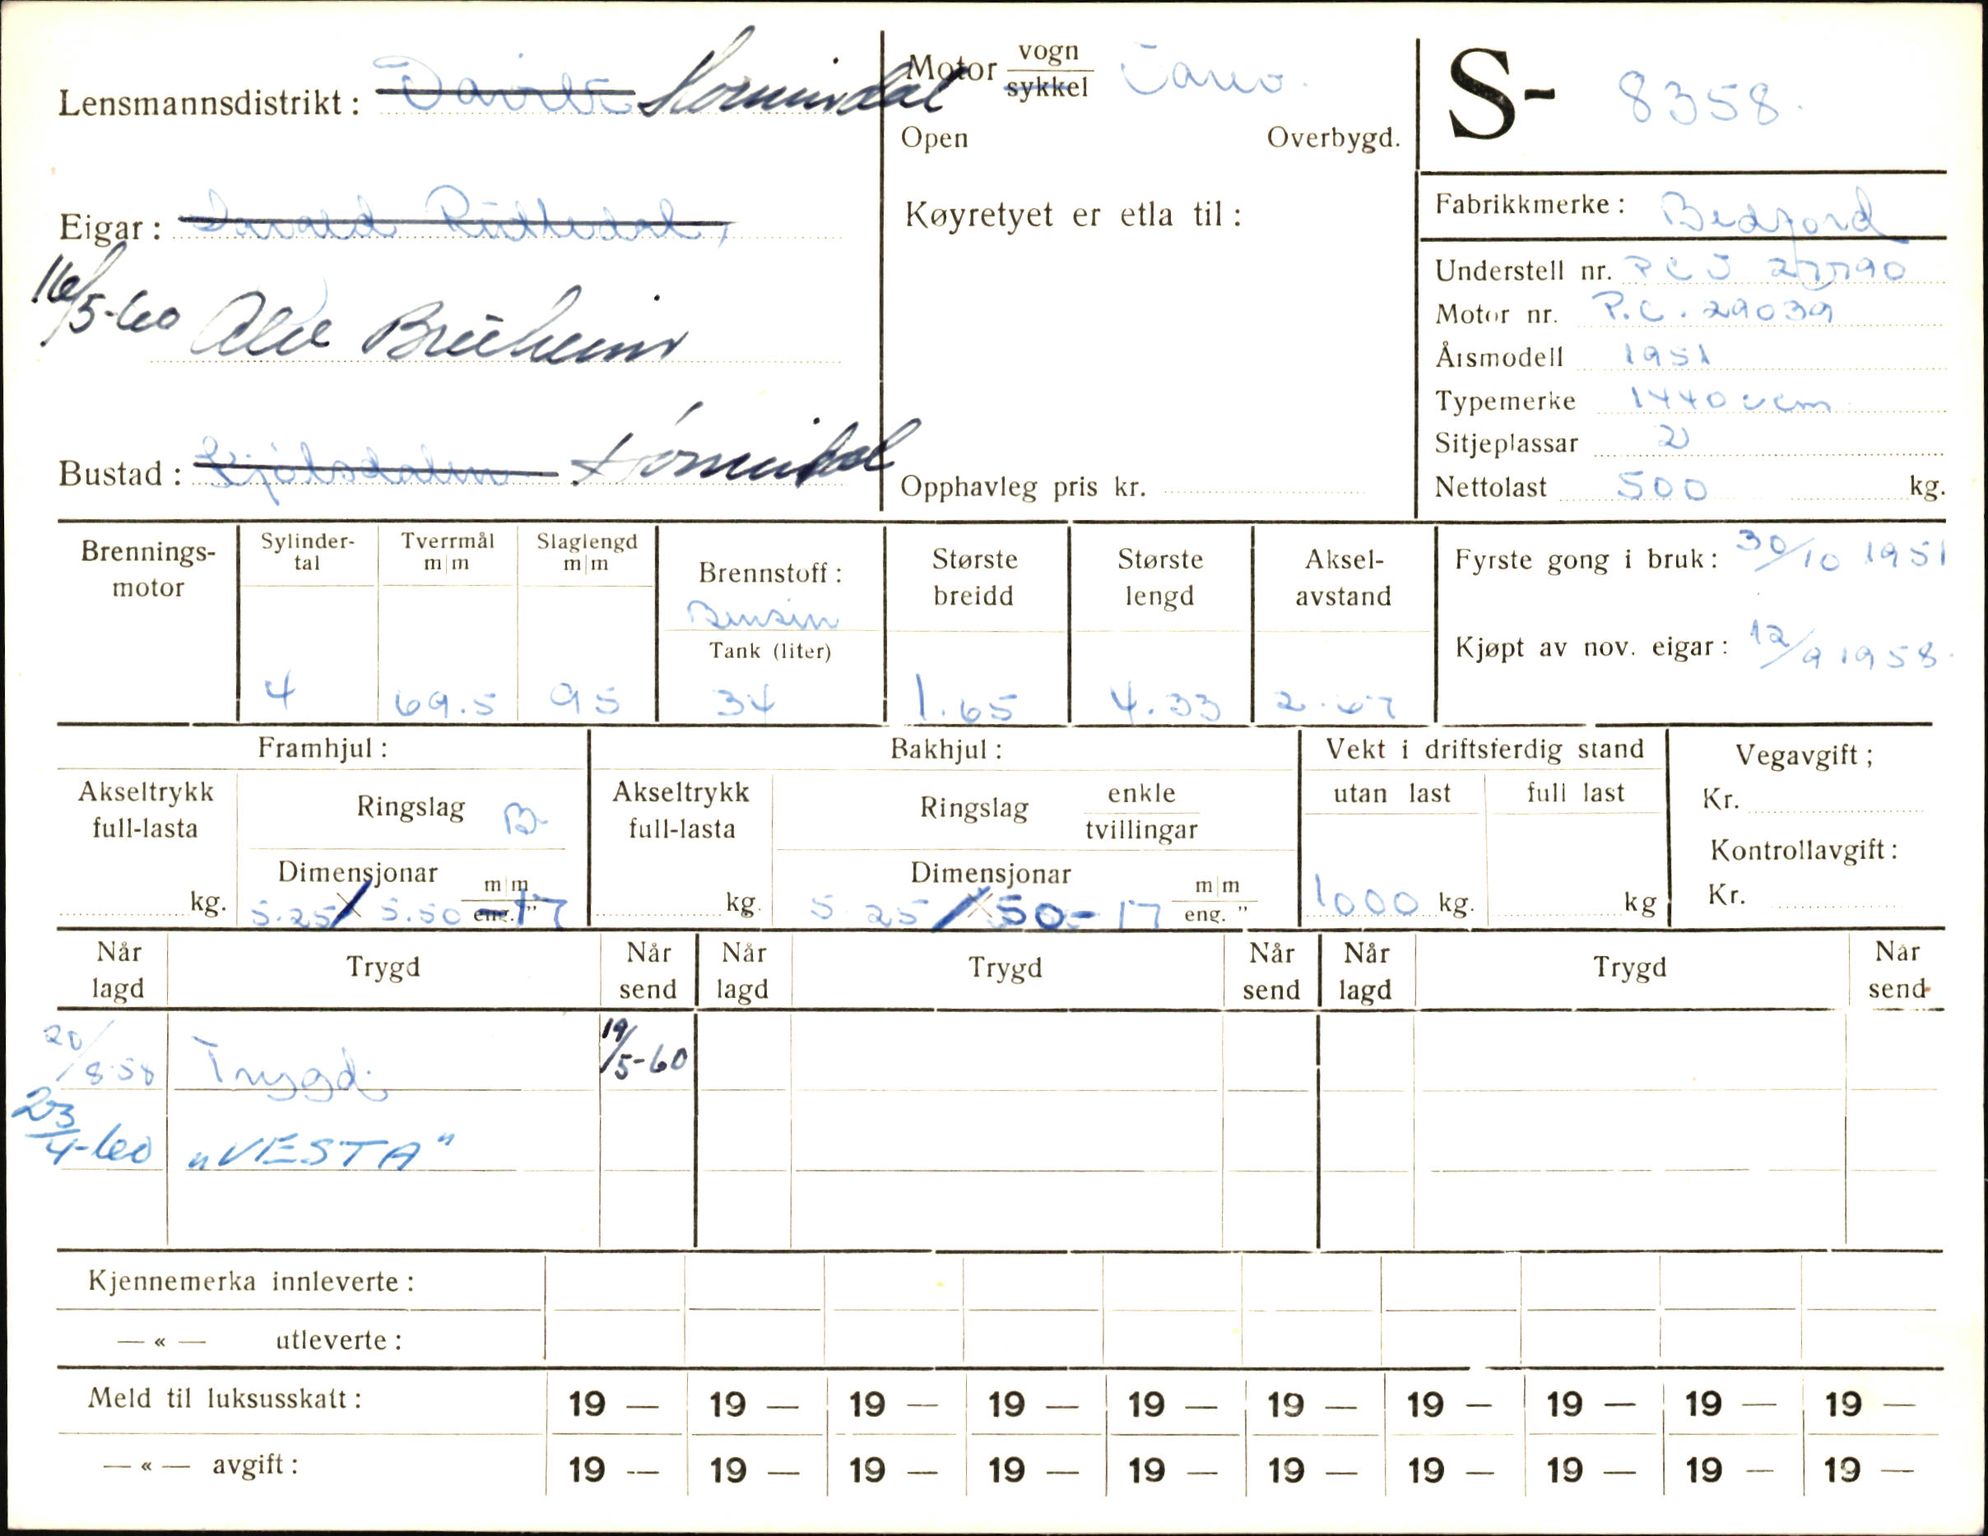 Lensmannsdistrikt: Davik Hornindal
Eigar:
16/5-60
Bustad: Kjølsdalen Hornindal
Motor vogn / sykkel Varev.
Open Overbygd.
Køyretyet er etla til:
Opphavleg pris kr.
S- 8358.
Fabrikkmerke: Bedford
Understell nr. PCJ 27790
Motor nr. P.C. 29039
Årsmodell 1951
Typemerke 1440 ccm
Sitjeplassar 2
Nettolast 500 kg.
Brennings-
motor
Sylinder-
tal
4
Tverrmål
m|m
69.5
Slaglengd
m|m
95
Brennstoff:
Bensin
Tank (liter)
34
Største
breidd
1.65
Største
lengd
4.33
Aksel-
avstand
2.67
Fyrste gong i bruk: 30/10 1951
Kjøpt av nov. eigar: 12/9 1958.
Framhjul:
Akseltrykk
full-lasta
kg.
Ringslag B.
Dimensjonar m|m / eng. "
5.25/5.50-17
Bakhjul:
Akseltrykk
full-lasta
kg.
Ringslag enkle / tvillingar
Dimensjonar m|m / eng. "
5.25/50-17
Vekt i driftsferdig stand
utan last full last
1000 kg. kg
Vegavgift;
Kr.
Kontrollavgift:
Kr.
Når
lagd
Trygd
Når
send
Når
lagd
Trygd
Når
send
Når
lagd
Trygd
Når
send
20/8-58 Trygd. 19/5-60
23/4-60 „VESTA"
Kjennemerka innleverte:
— « — utleverte:
Meld til luksusskatt: 19 — 19 — 19 — 19 — 19 — 19 — 19 — 19 — 19 — 19 —
— « — avgift: 19 — 19 — 19 — 19 — 19 — 19 — 19 — 19 — 19 — 19 —